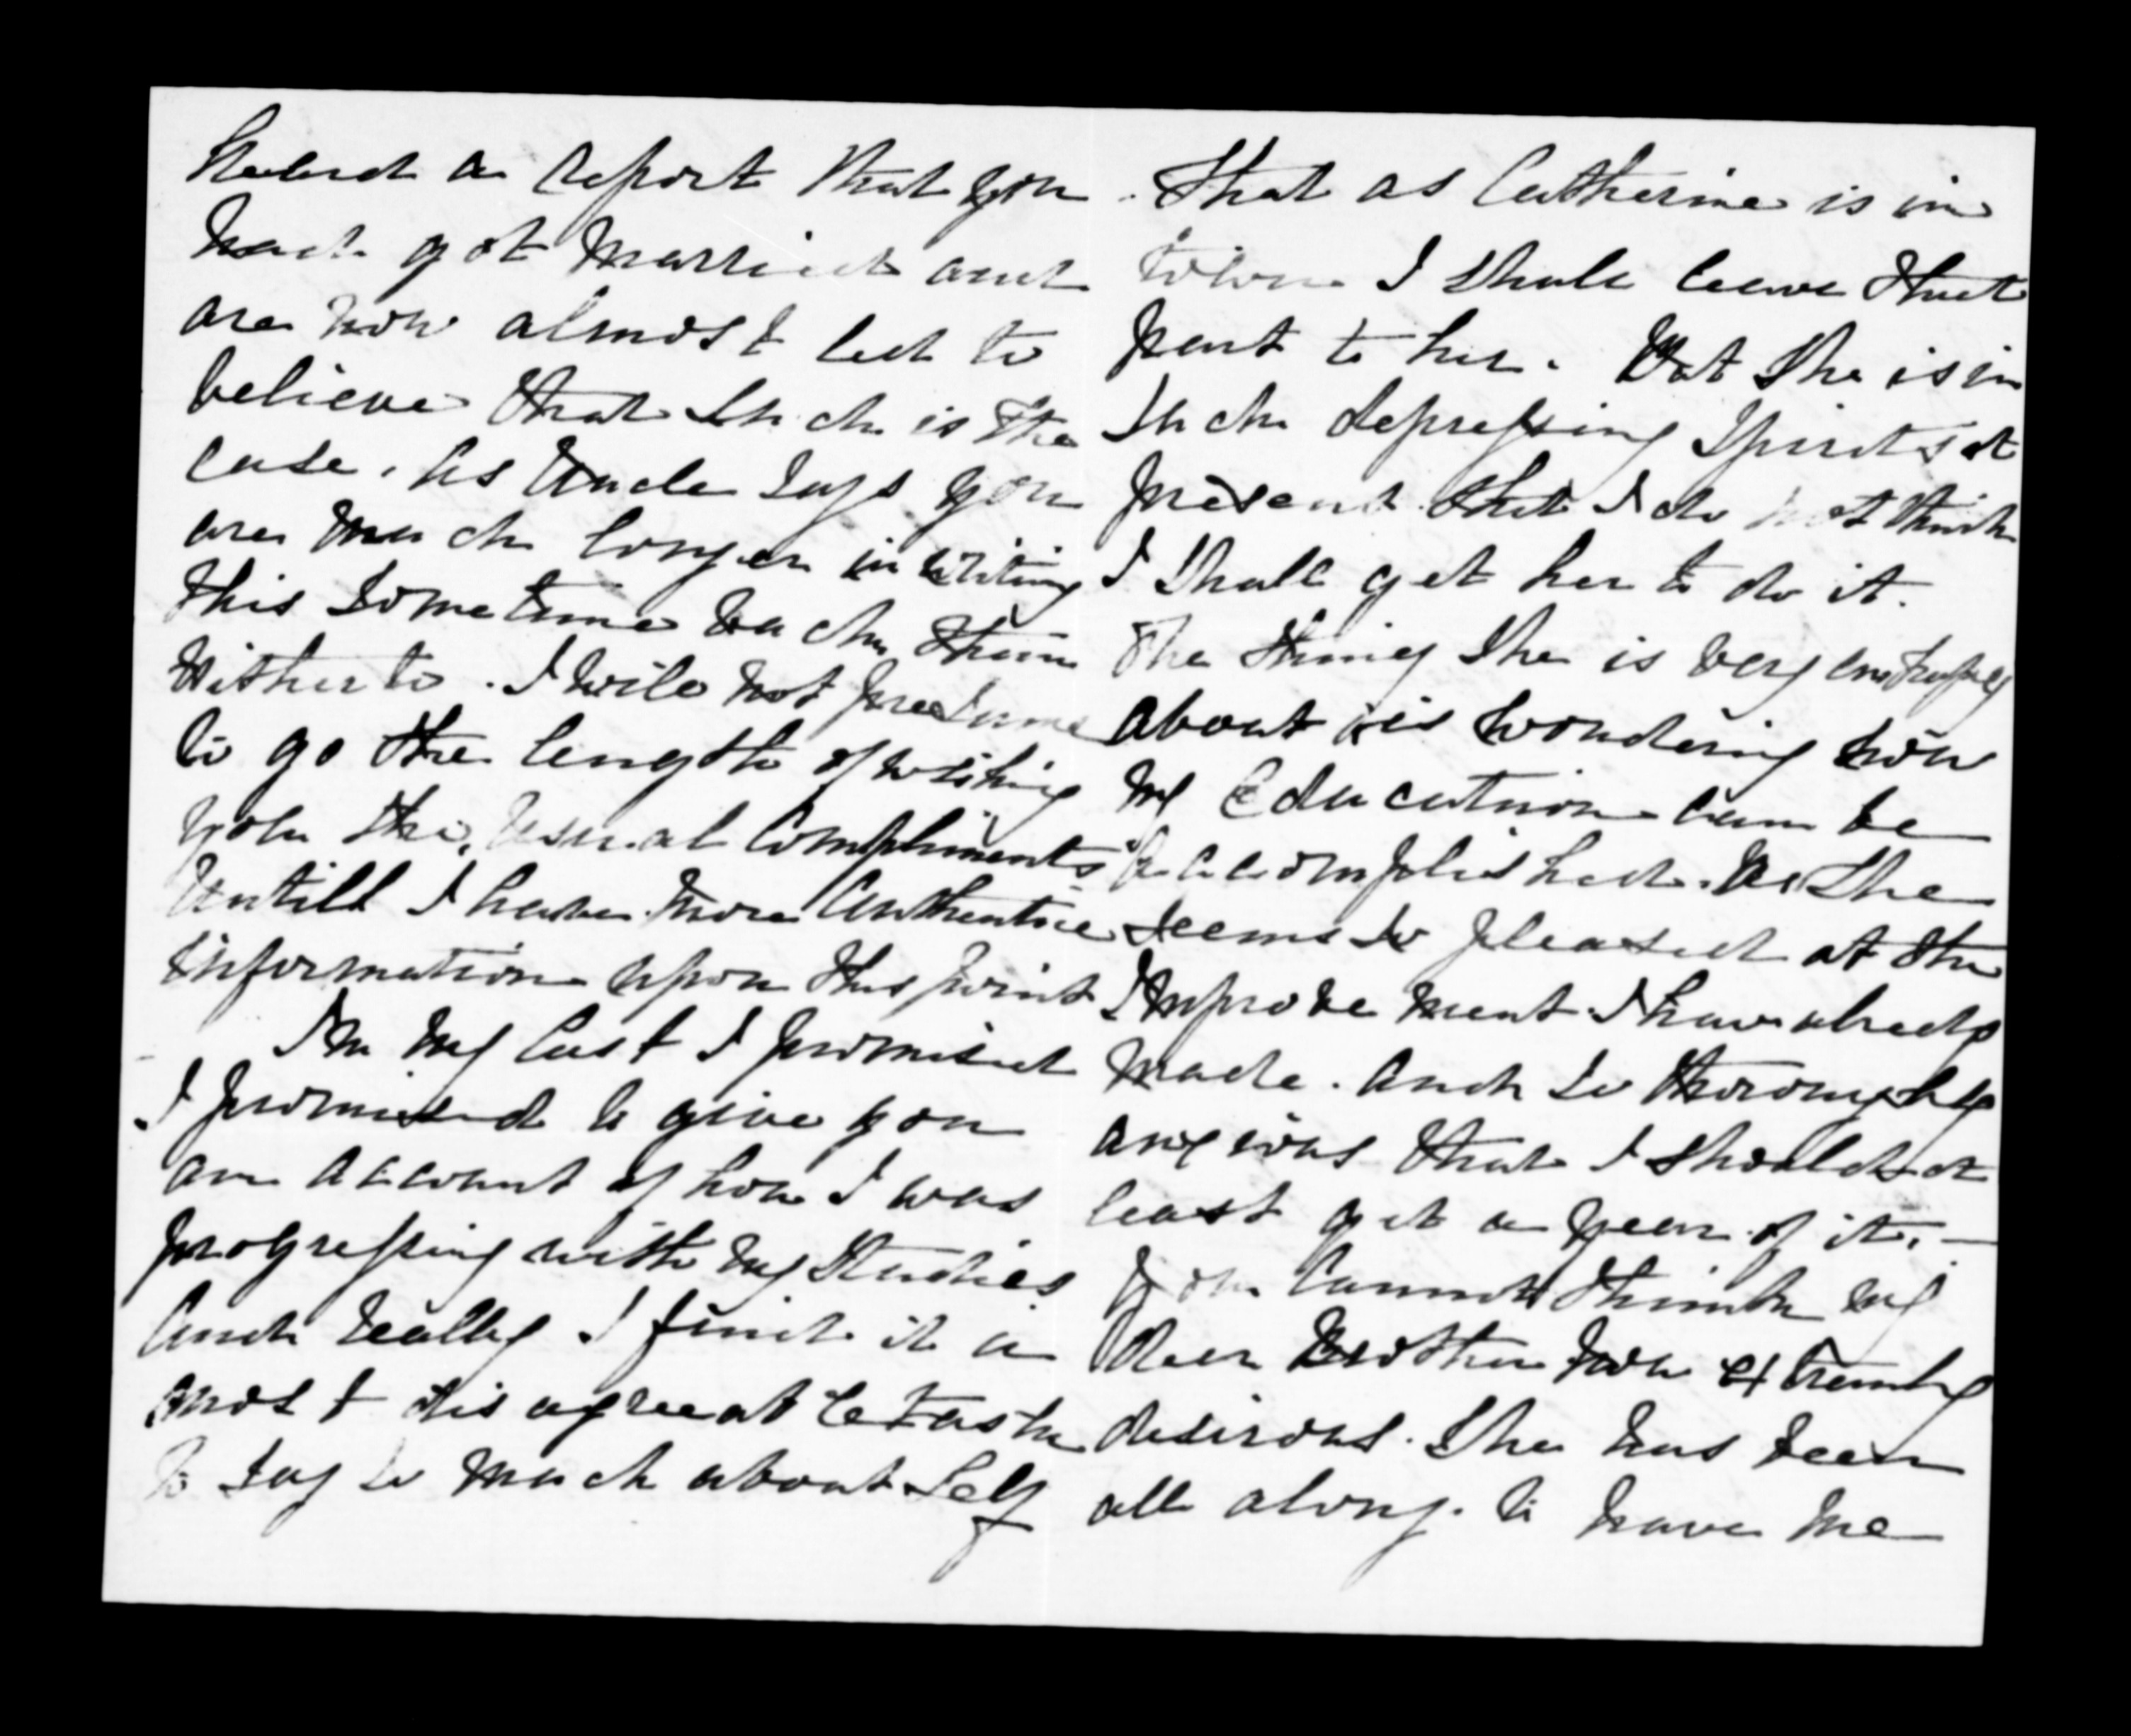 heard a report that you
had got married and
are now almost led to
believe that such is the
case. As Uncle says you
are much longer in writing
this sometime back than
hitherto. I will not presume
to go the length of wishing
you the usual Compliments
Untill I have more Authentic
information upon this point
In my last I promised
I promised to give you
an account of how I was
progressing with my studies
And really I find it a
most disagreeable task
to say so much about self
That as Catherine is in
town I shall leave that
part to her. But she is in
such depressing spirits at
present that I do not think
I shall get her to do it.
The thing she is very
about is wondering how
my Education can be
accomplished. As she
seems so pleased at the
Improvement I have already
made. And so thoroughly
anxious that I should at
least get a year of it. —
You cannot think my
dear Brother how extremly
desirous she has been
all along. to have me